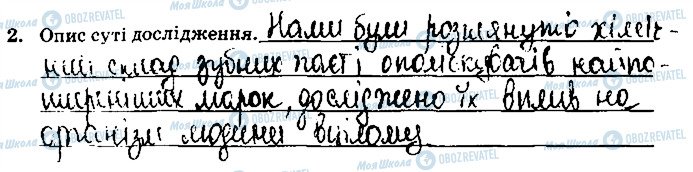 2. Опис суті дослідження. Нами були розглянуто хіміч-
ний склад зубних паст і ополіскувачів найпо-
ширеніших марок, досліджено їх вплив на
організм людини вцілому